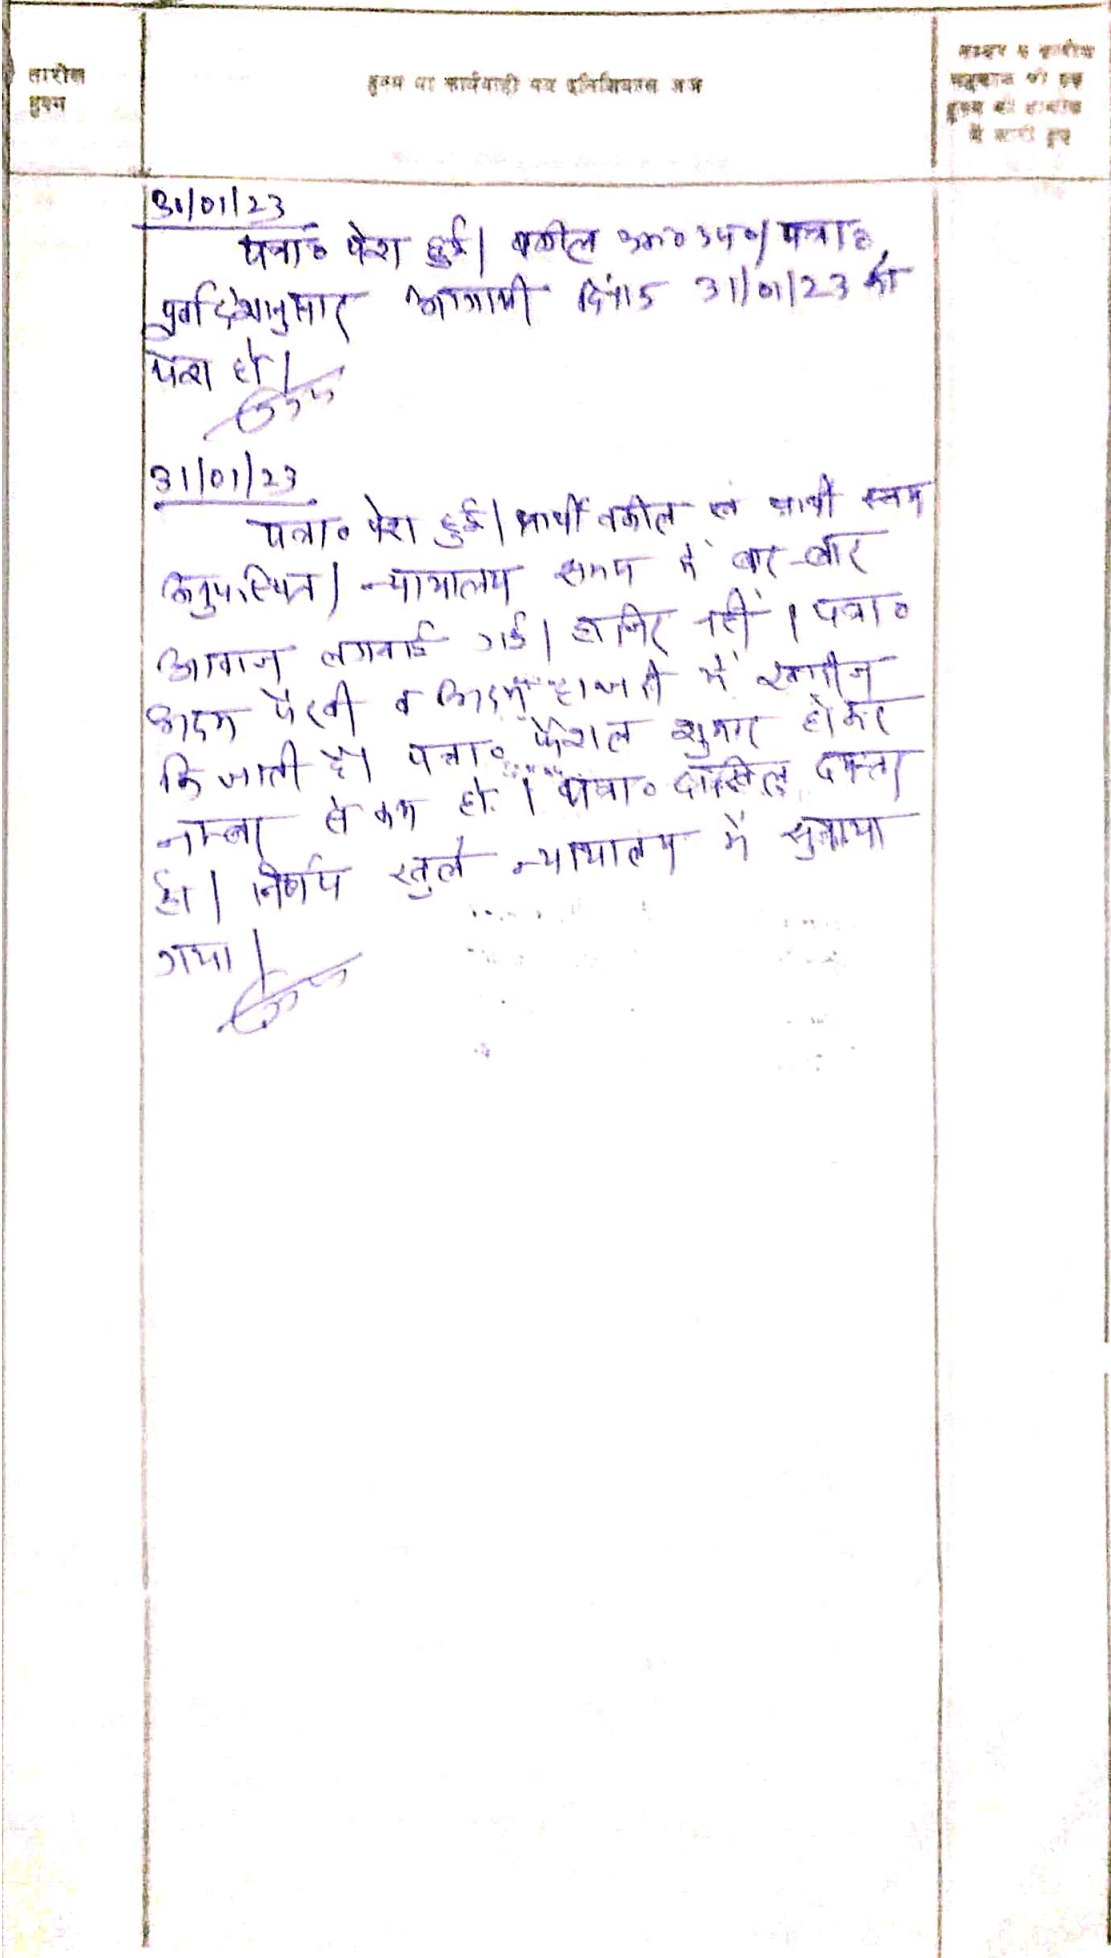 तारीख
हुक्म
हुक्म या कार्यवाही मय इनिशियल्स जज
नम्बर व तारीख
अहकाम जो इस
हुक्म की तामील
में जारी हुए
30/01/23
पत्रा० पेश हुई। वकील उप०। पत्रा०
पूर्वादेशानुसार आगामी दिनांक 31/01/23 को
पेश हो।
31/01/23
पत्रा० पेश हुई। प्रार्थी वकील एवं प्रार्थी स्वयं
अनुपस्थित। न्यायालय समय में बार-बार
आवाज लगवाई गई। हाजिर नहीं। पत्रा०
अदम पैरवी व अदम हाजरी में खारीज
कि जाती है। पत्रा० फैशल शुमार होकर
नम्बर से कम हो। पत्रा० दाखिल दफ्तर
हो। निर्णय खुले न्यायालय में सुनाया
गया।